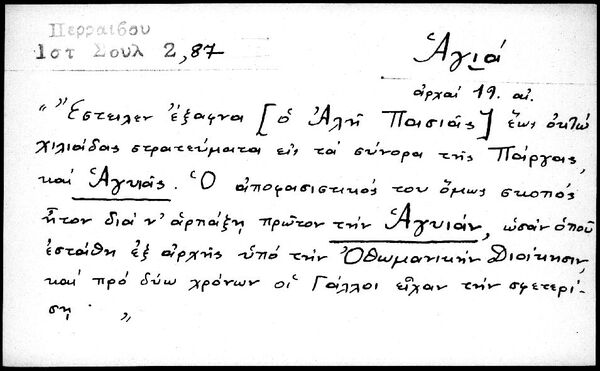 Περραιβου
Ιστ Σουλ 2,87
Ἁγιά
ἀρχαί 19. αἰ.
"Ἔστειλεν ἔξαφνα [ὁ Ἀλῆ Πασιᾶς] ἕως ὀκτώ
χιλιάδας στρατεύματα εἰς τά σύνορα τῆς Πάργας,
καί Ἁγυιᾶς. Ὁ ἀποφασιστικός του ὅμως σκοπός
ἦτον διά ν' ἁρπάξῃ πρῶτον τήν Ἁγυιάν, ὡσάν ὁποῦ
ἐστάθη ἐξ ἀρχῆς ὑπό τήν Ὀθωμανικήν Διοίκησιν,
καί πρό δύω χρόνων οἱ Γάλλοι εἶχαν τήν σφετερί-
σῃ. "